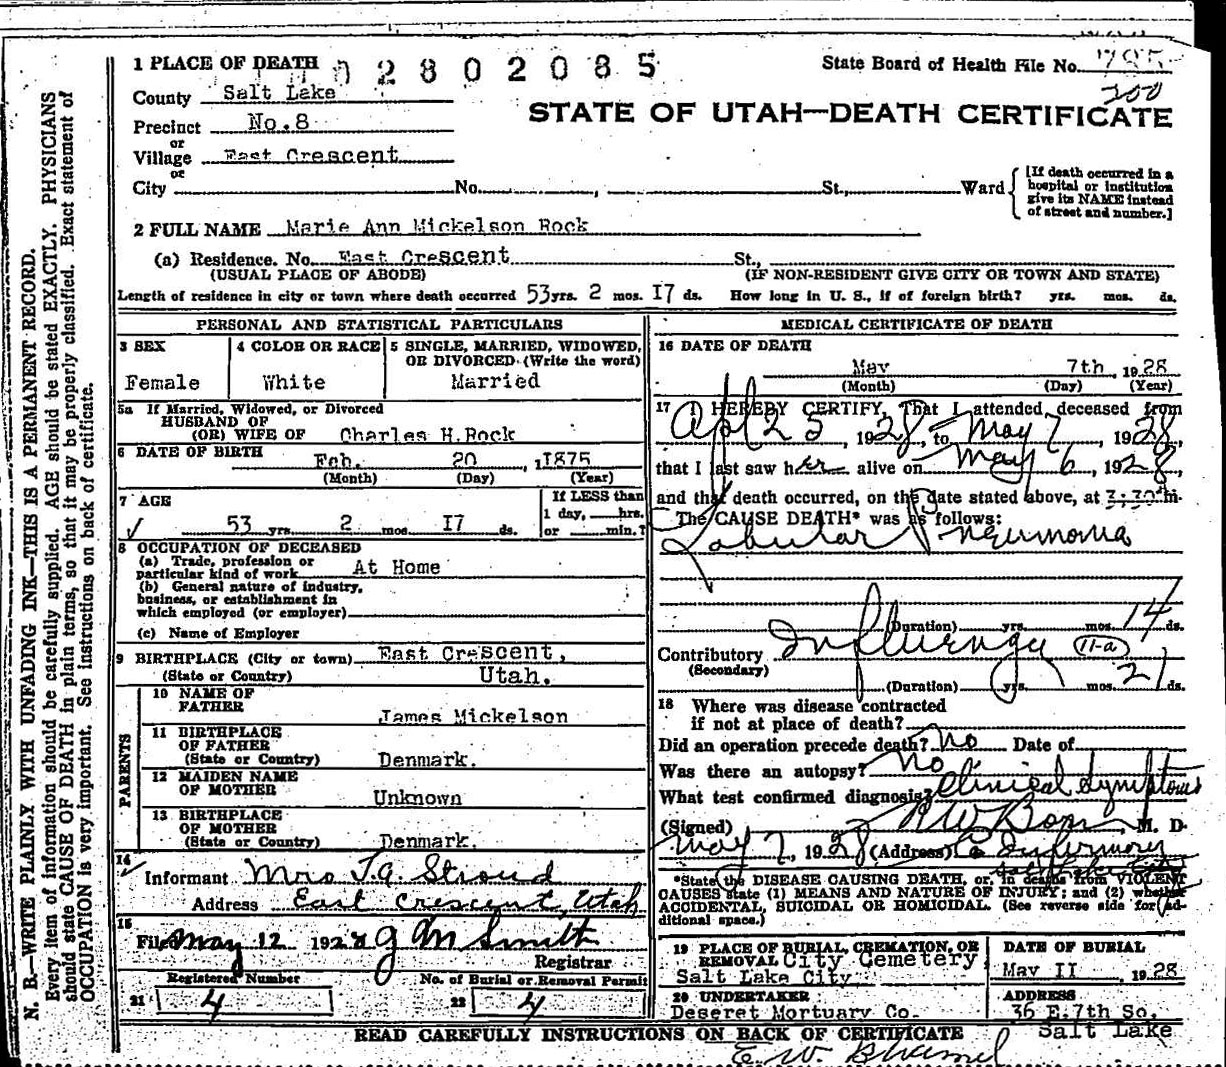 1 PLACE OF DEATH
2802085
State Board of Health File No. 785
200
County Salt Lake
STATE OF UTAH—DEATH CERTIFICATE
Precinct No.8
or
Village East Crescent
or
City No. , St., Ward
[If death occurred in a hospital or institution give its NAME instead of street and number.]
2 FULL NAME Marie Ann Mickelson Rock
(a) Residence. No. East Crescent St.,
(USUAL PLACE OF ABODE) (IF NON-RESIDENT GIVE CITY OR TOWN AND STATE)
Length of residence in city or town where death occurred 53 yrs. 2 mos. I7 ds. How long in U. S., if of foreign birth? yrs. mos. ds.
PERSONAL AND STATISTICAL PARTICULARS
3 SEX
Female
4 COLOR OR RACE
White
5 SINGLE, MARRIED, WIDOWED, OR DIVORCED (Write the word)
Married
5a If Married, Widowed, or Divorced
HUSBAND OF
(OR) WIFE OF Charles H.Rock
6 DATE OF BIRTH
Feb. 20 , 1I875
(Month) (Day) (Year)
7 AGE
53 yrs. 2 mos. I7 ds.
If LESS than
1 day, hrs.
or min.?
8 OCCUPATION OF DECEASED
(a) Trade, profession or
particular kind of work At Home
(b) General nature of industry,
business, or establishment in
which employed (or employer)
(c) Name of Employer
9 BIRTHPLACE (City or town) East Crescent,
(State or Country) Utah.
PARENTS
10 NAME OF
FATHER James Mickelson
11 BIRTHPLACE
OF FATHER
(State or Country) Denmark.
12 MAIDEN NAME
OF MOTHER Unknown
13 BIRTHPLACE
OF MOTHER
(State or Country) Denmark.
14
Informant Mrs J.A. Stroud
Address East Crescent, Utah
15
Filed May 12 1928 J M Smith
Registrar
Registered Number No. of Burial or Removal Permit
21 4 22 4
MEDICAL CERTIFICATE OF DEATH
16 DATE OF DEATH
May 7th , 1928
(Month) (Day) (Year)
17 I HEREBY CERTIFY, That I attended deceased from
Apl 25 , 1928, to May 7 , 1928,
that I last saw her alive on May 6 , 1928,
and that death occurred, on the date stated above, at 3:30 m.
The CAUSE DEATH* was as follows:
Lobular Pneumonia
(Duration) yrs. mos. 14 ds.
Contributory Influenza 11-a
(Secondary)
(Duration) yrs. mos. 21 ds.
18 Where was disease contracted
if not at place of death?
Did an operation precede death? No Date of
Was there an autopsy? No
What test confirmed diagnosis? Clinical Symptoms
(Signed) , M. D.
May 7, 1928 (Address) Co Infirmary
*State the DISEASE CAUSING DEATH, or, in deaths from VIOLENT
CAUSES state (1) MEANS AND NATURE OF INJURY; and (2) whether
ACCIDENTAL, SUICIDAL OR HOMICIDAL. (See reverse side for ad-
ditional space.)
19 PLACE OF BURIAL, CREMATION, OR
REMOVAL City Cemetery
Salt Lake City
DATE OF BURIAL
May II 1928
20 UNDERTAKER
Deseret Mortuary Co.
ADDRESS
36 E.7th So.
Salt Lake
READ CAREFULLY INSTRUCTIONS ON BACK OF CERTIFICATE
E. W.
N. B.—WRITE PLAINLY WITH UNFADING INK—THIS IS A PERMANENT RECORD.
Every item of information should be carefully supplied. AGE should be stated EXACTLY. PHYSICIANS
should state CAUSE OF DEATH in plain terms, so that it may be properly classified. Exact statement of
OCCUPATION is very important. See instructions on back of certificate.